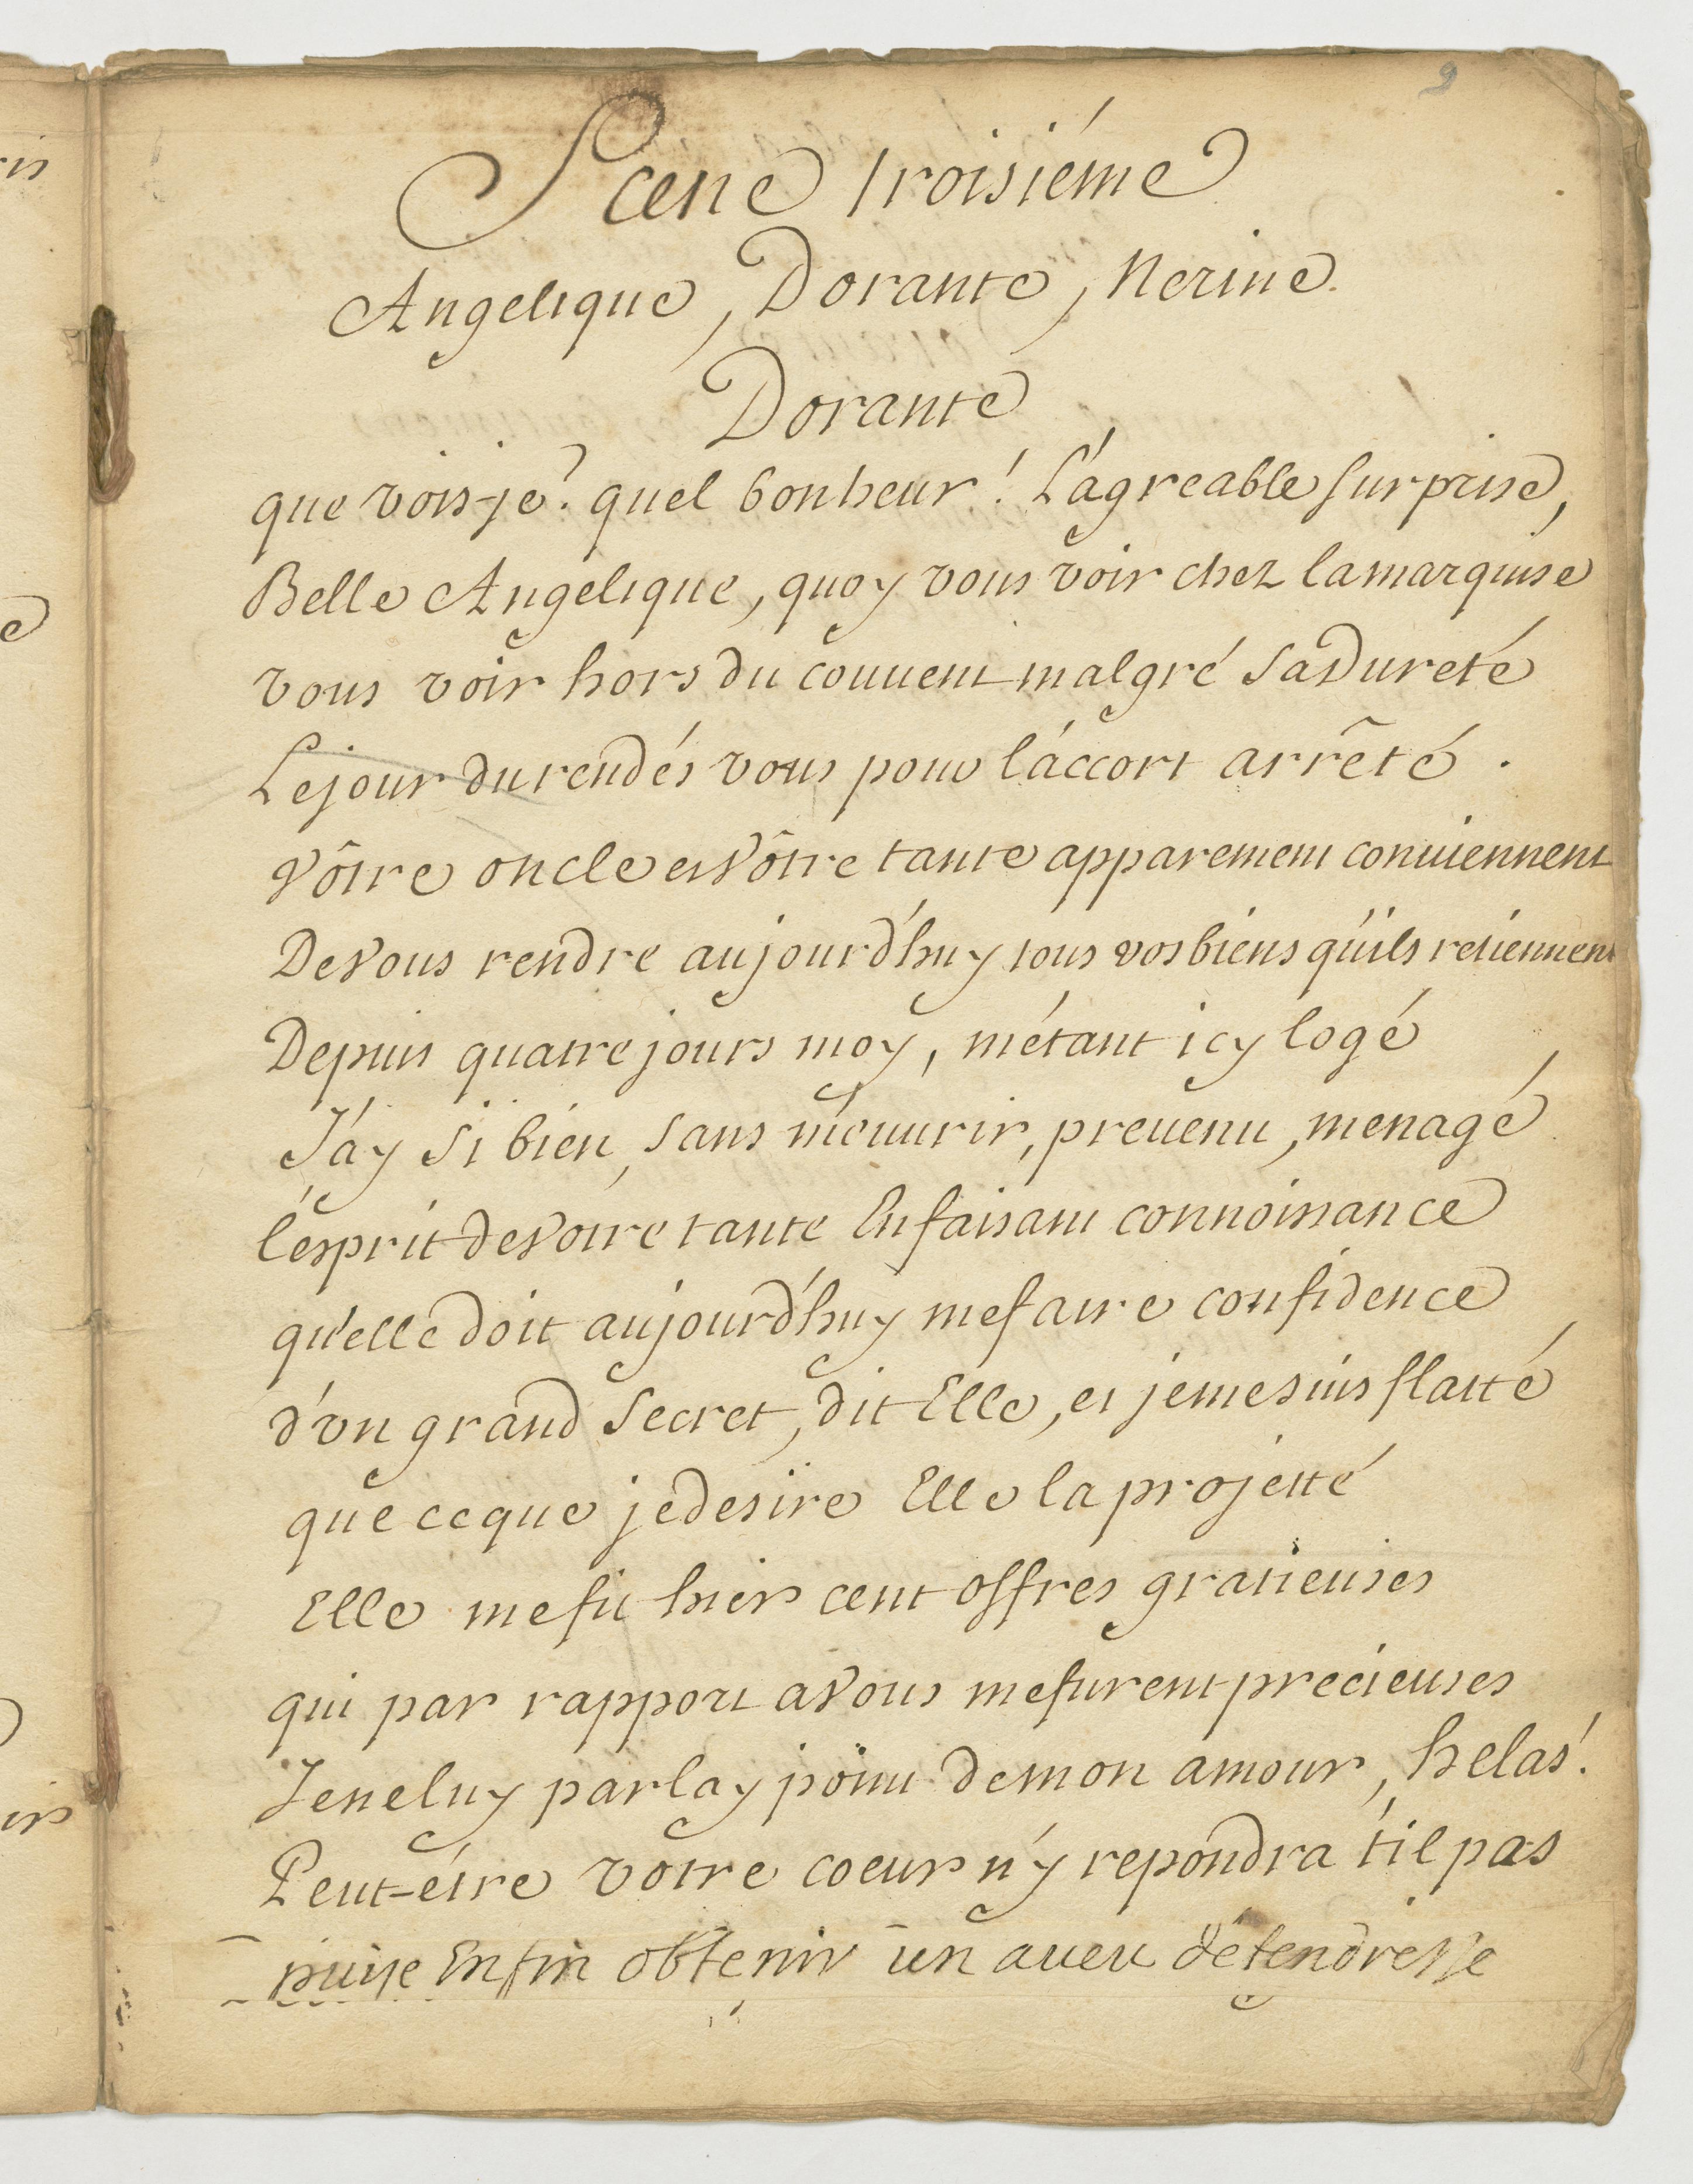 9
Scene troisiéme
Angelique, Dorante, Nerine.
Dorante
que vois-je? quel bonheur! L'agreable surprise,
Belle Angelique, quoy vous voir chez la marquise
vous voir hors du couvent malgré sa Dureté
Le jour du rendés vous pour l'accort arrêté.
Vôtre oncle et Vôtre tante apparement conviennent
De Vous rendre aujourd'huy tous vos biens qu'ils retiennent
Depuis quatre jours moy, m'étant icy logé
J'ay si bien, sans m'ouvrir, prevenu, menagé
l'esprit de Votre tante En faisant connoissance
qu'elle doit aujourd'huy me faire confidence
d'un grand Secret, dit Elle, et je me suis flatté
que ce que je desire Elle la projetté
Elle me fit hier cent offres gratieuses
qui par rapport a Vous me furent precieuses
Je ne luy parlay point de mon amour, helas!
Peut-etre votre coeur n'y repondra t'il pas
puise Enfin obtenir un aveu de tendresse